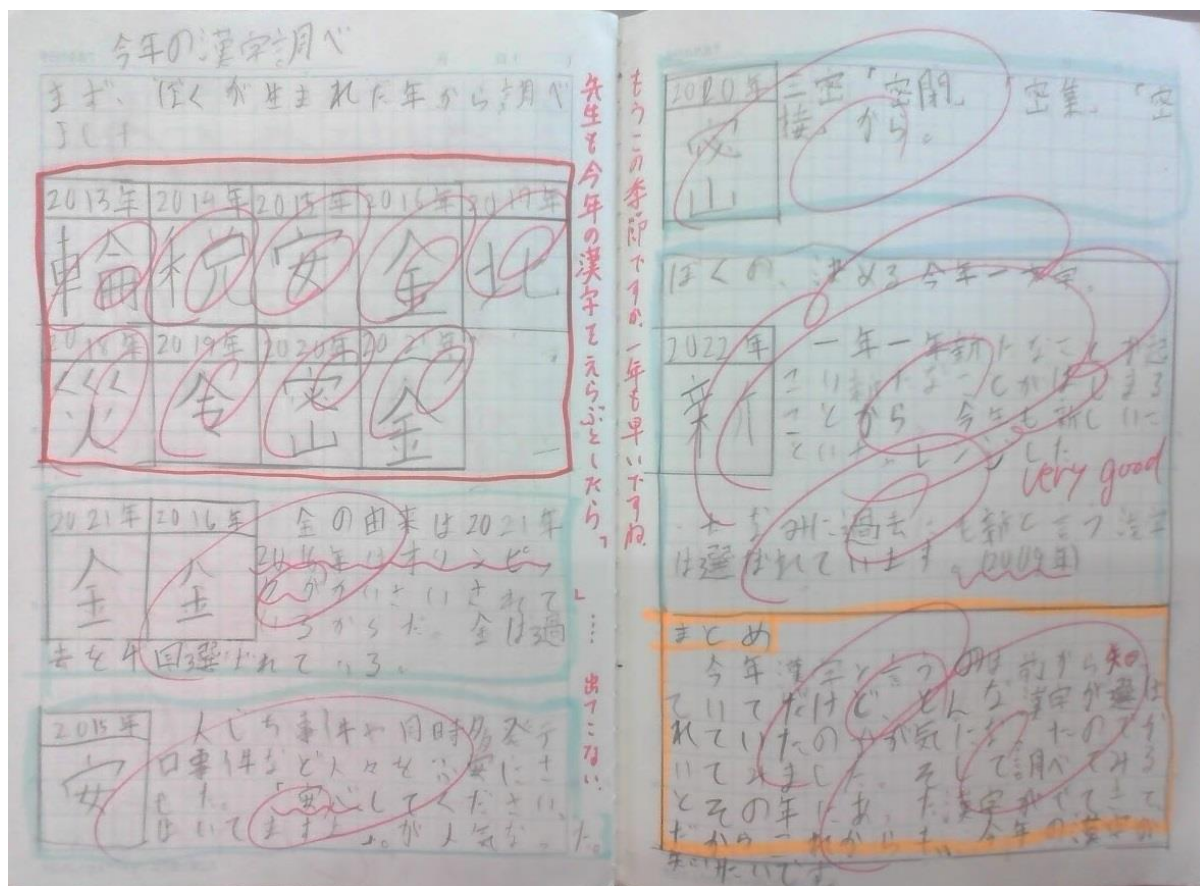 今年の漢字調べ
まず、ぼくが生まれた年から調べ
ました
2013年 2014年 2015年 2016年 2017年
輪 税 安 金 北
2018年 2019年 2020年 2021年
災 令 密 金
2021年 2016年
金 金
金の由来は2021年
2016年はオリンピッ
クがかいさいされて
いるからだ。金は過
去を4回選ばれている。
2015年
安
人じち事件や同時多発テ
ロ事件など人々を不安にさ
せた。「安心してください、
はいてますよ。」が人気だった。
先生も今年の漢字をえらぶとしたら、「」……出てこない。
もうこの季節ですか、一年も早いですね。
2020年
密
三密「密閉」「密集」「密
接」から。
ぼくの、決める今年一文字。
2022年
新
一年一年新たなことが起
こり新たな
ことから、今年も新しいこ
very good
ちなみに過去にも新と言う漢字
は選ばれています。(2009年)
まとめ
今年漢字と言うのは前から知っ
ていてだけど、どんな漢字が選ば
れていたのかが気になったのでか
いてみました。そして調べてみる
とその年にあった漢字がでてきて、
だからこれからも、今年の漢字が
知りたいです